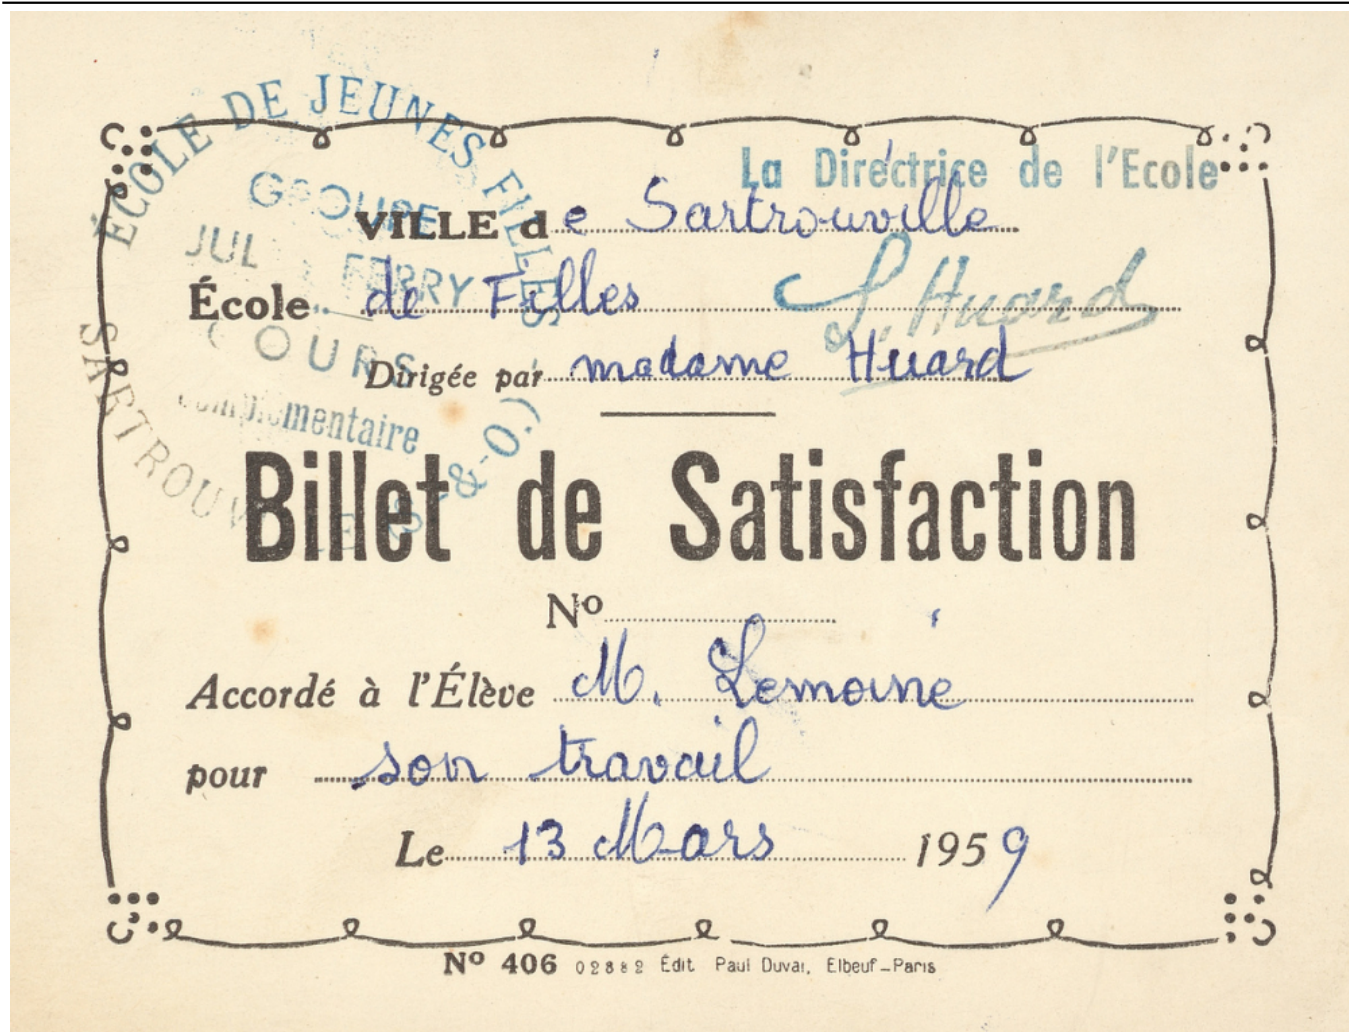 ÉCOLE DE JEUNES FILLES
SARTROUV
(S.-&-O.)
GROUPE
JUL FERRY
COURS
complémentaire
La Directrice de l'Ecole
L. Huard
VILLE de Sartrouville
École de Filles
Dirigée par madame Huard
Billet de Satisfaction
No
Accordé à l'Élève M. Lemoine
pour son travail
Le 13 Mars 1959
No 406 02882 Édit. Paul Duval, Elbeuf-Paris